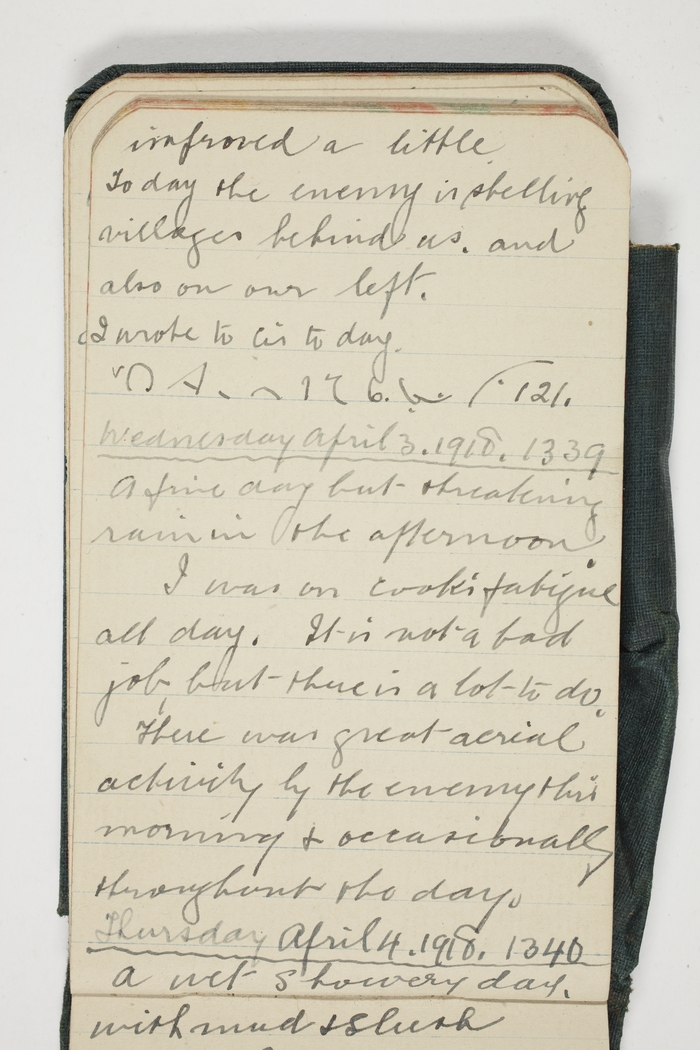 improved a little
Today the enemy is shelling
villages behind us. and
also on our left.
I wrote to Cis to day.
121.
Wednesday April 3. 1918. 1339
A fine day but threatening
rain in the afternoon
I was on cooks fatigue
all day. It is not a bad
job, but there is a lot to do.
There was great aerial
activity by the enemy this
morning & occasionally
throughout the day.
Thursday April 4. 1918. 1340
A wet showery day.
with mud & slush